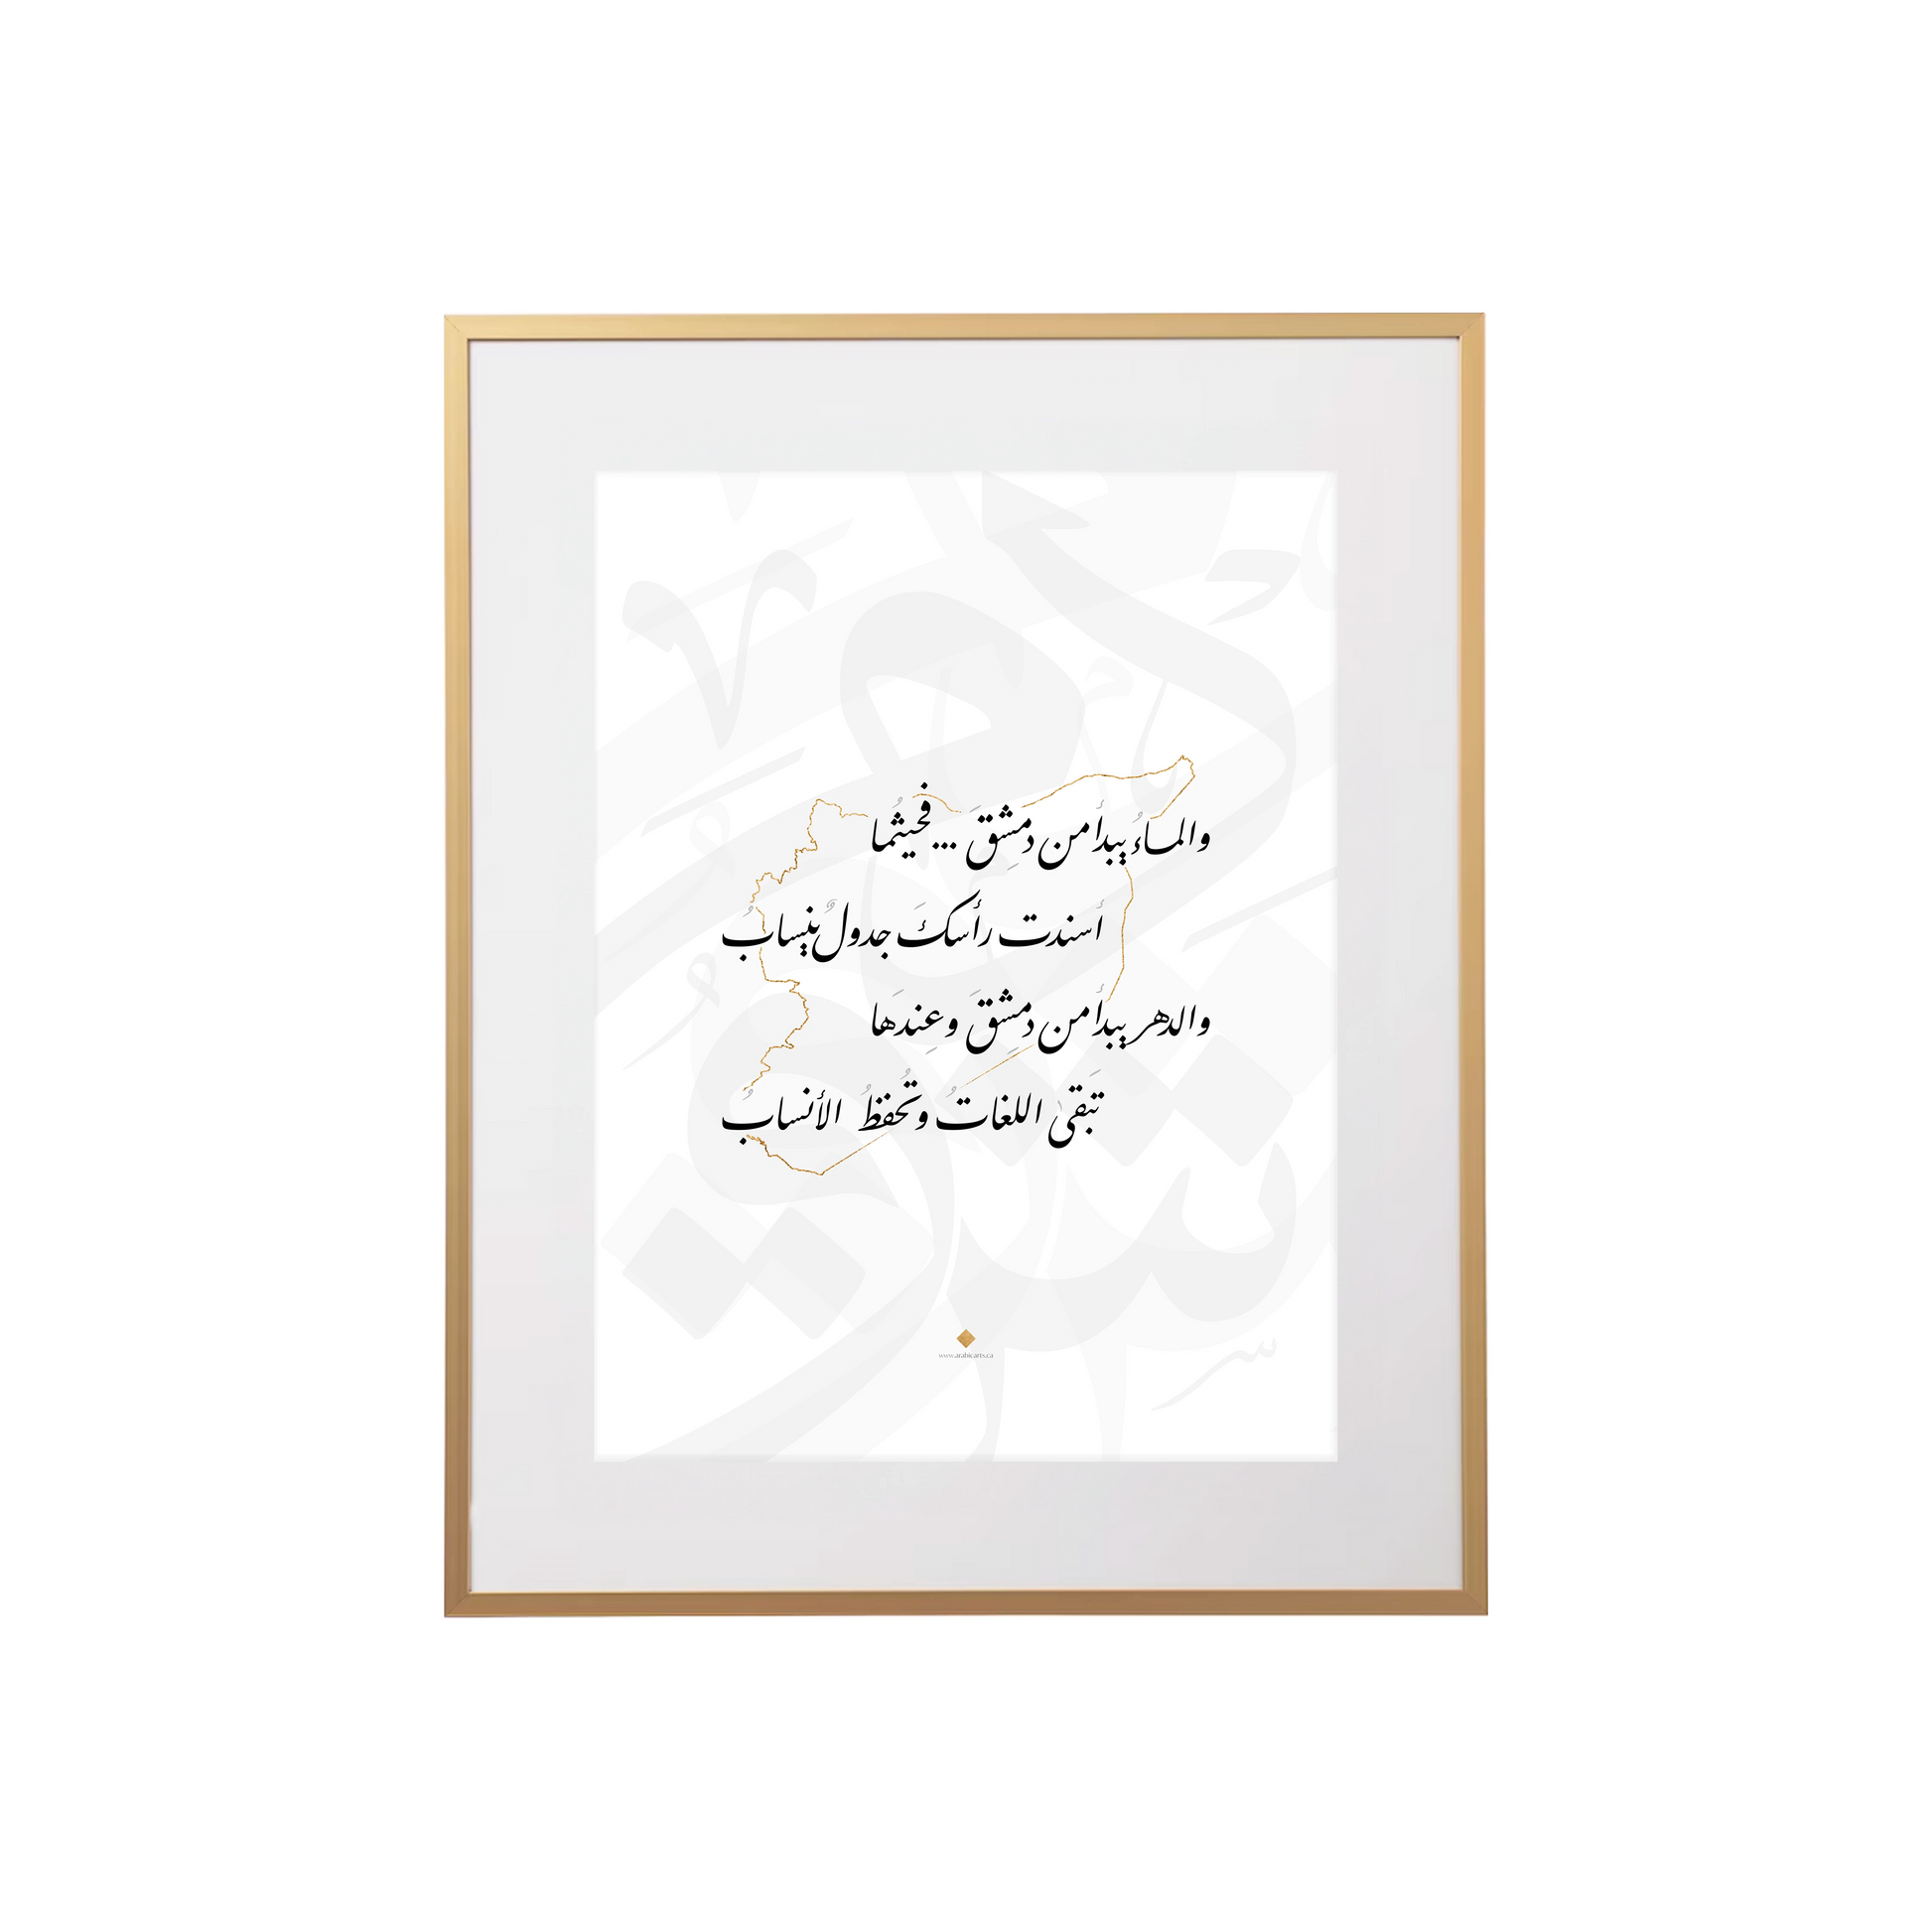 والماءُ يبدأُ من دمِشقَ ... فحيثُما
أسندتَ رأسكَ جدولٌ ينسابُ
والدهر يبدأُ من دمِشِقَ وعِندَها
تَبقىٰ اللغاتُ وتُحفظُ الأنسابُ
www.arabicarts.ca